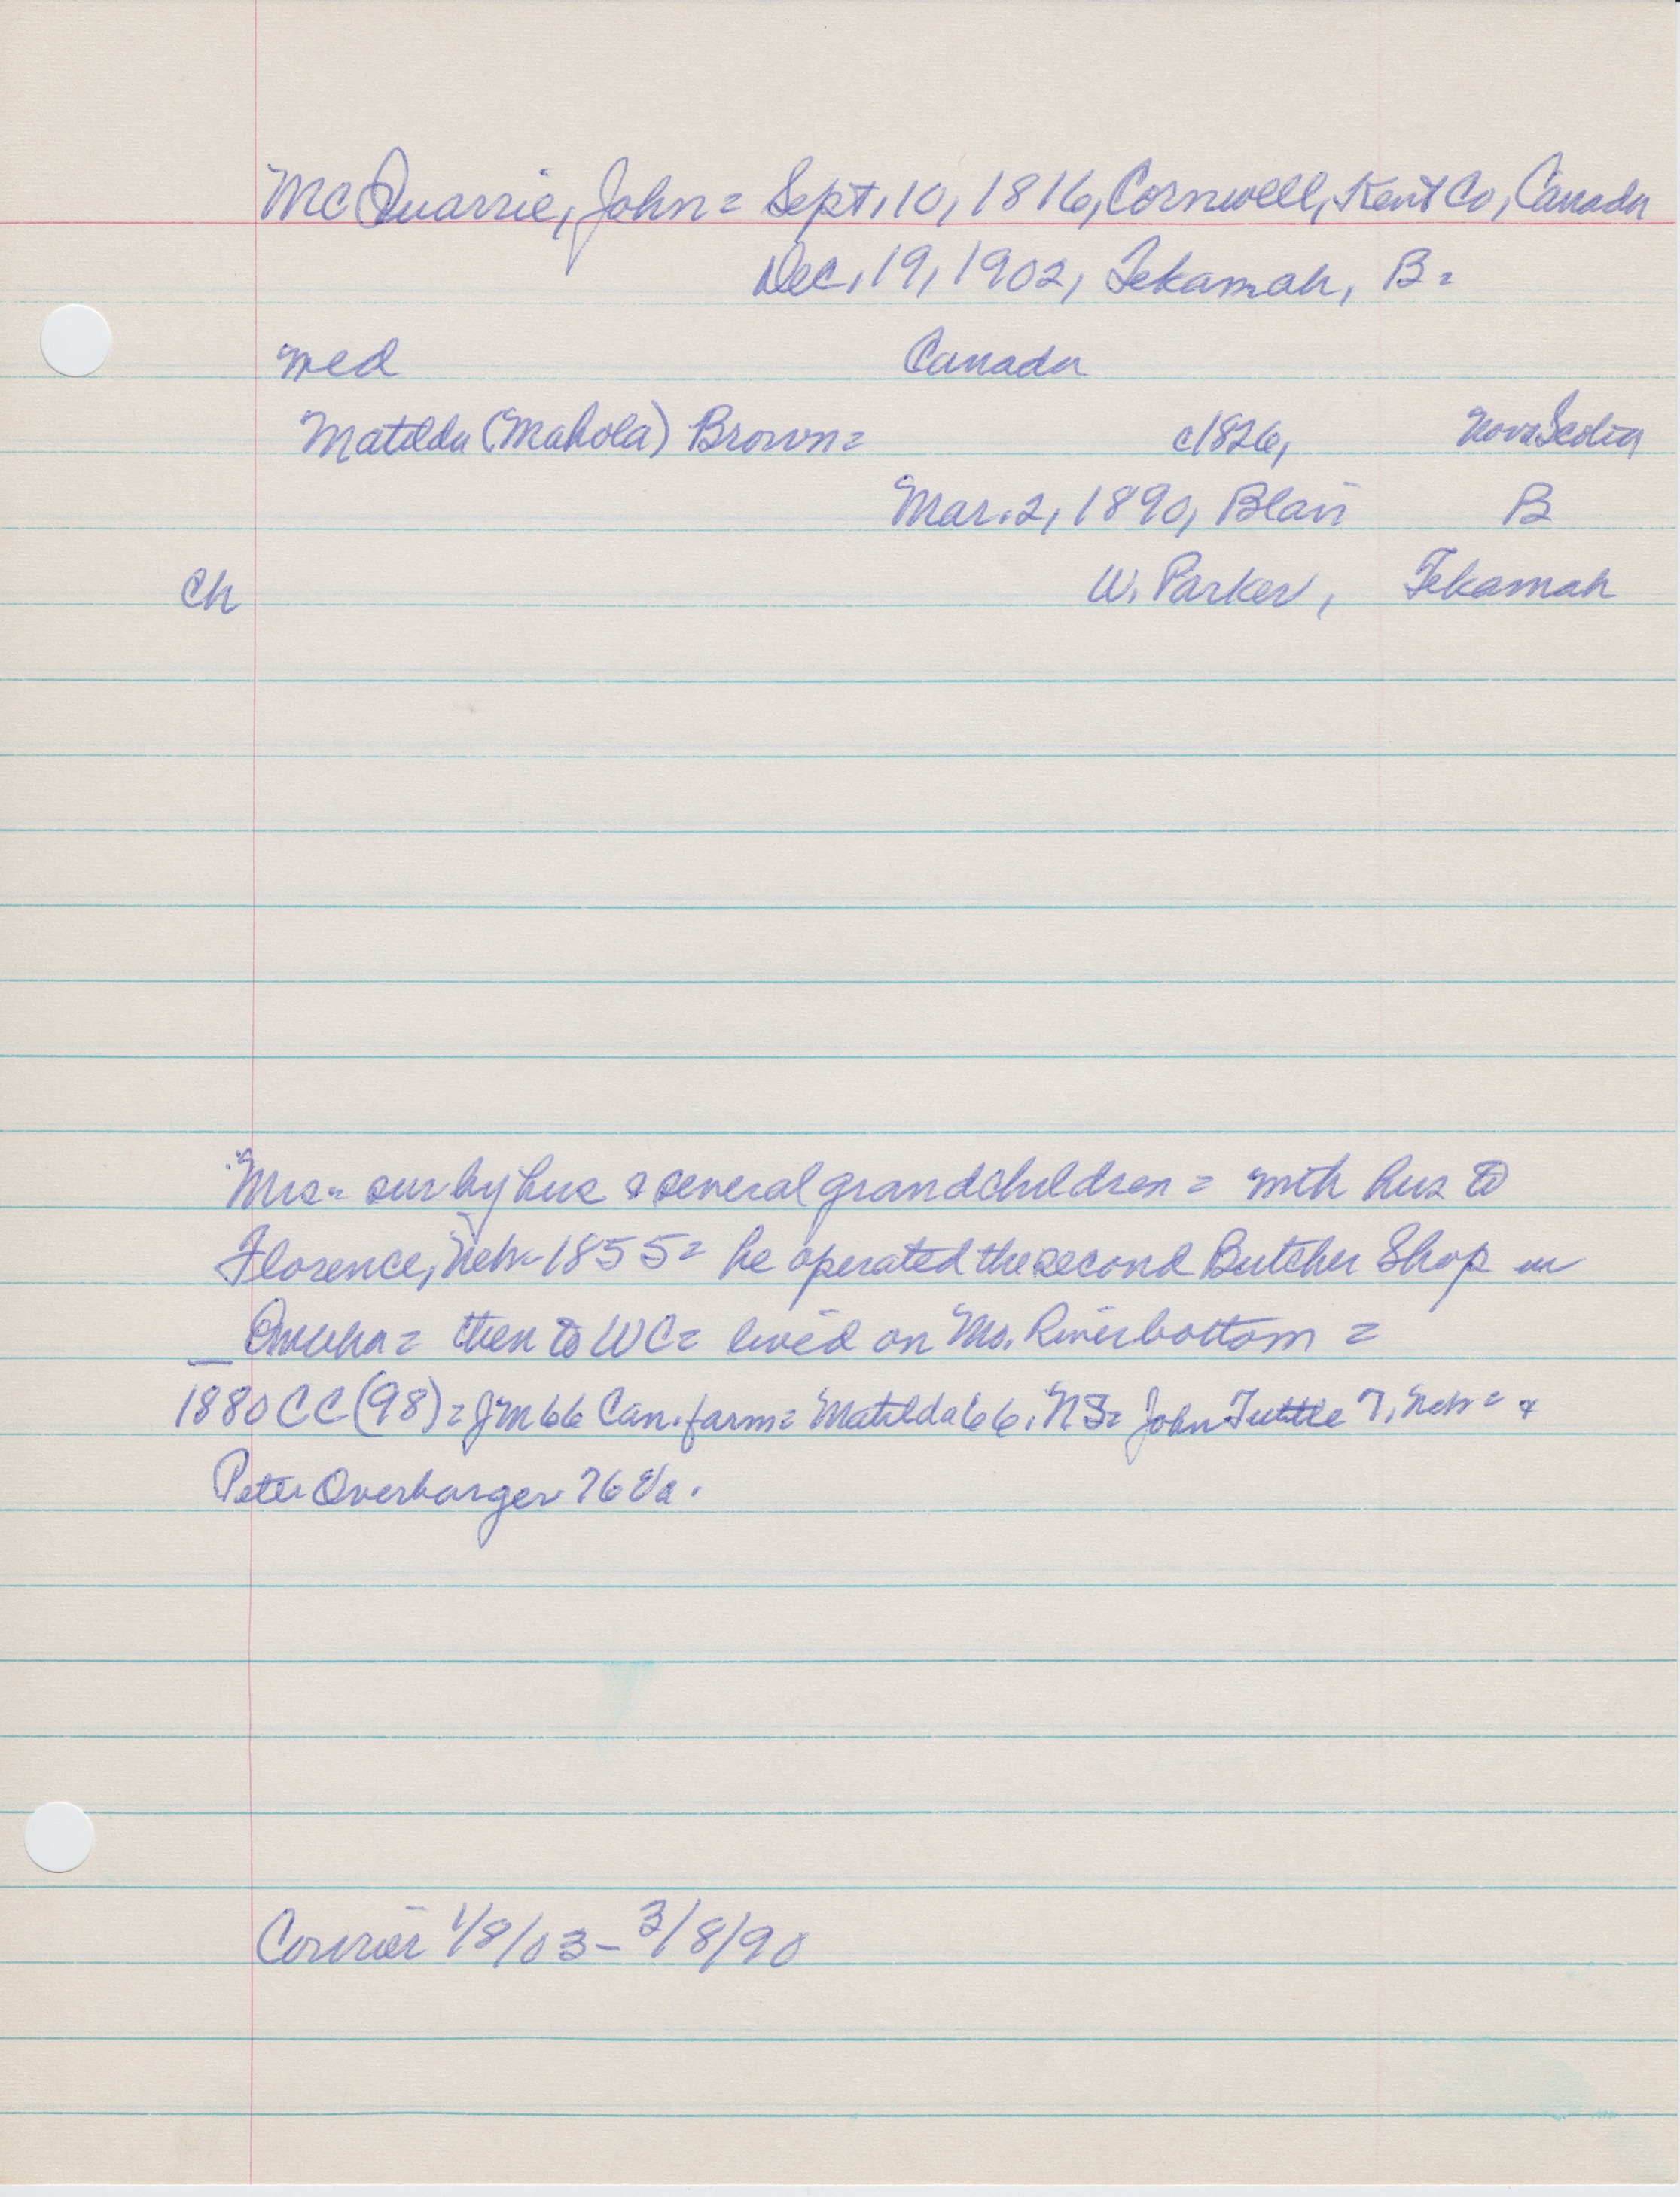 McQuarrie, John = Sept. 10, 1816, Cornwell, Kent Co, Canada
Dec. 19, 1902, Tekamah, B =
med Canada
Matilda (Mahola) Brown = c1826, Nova Scotia
Mar. 2, 1890, Blair B
Ch W. Parker, Tekamah
Mrs = sur by hus & several grandchildren = with hus to
Florence, Nebr 1855 = he operated the second Butcher Shop in
Omaha = then to WC = lived on Mo. River bottom =
1880 CC (98) = JM 66 Can. farm = Matilda 66, NS = John Tuttle 7, Nebr = &
Peter Overbarger 76 Va.
Courier 1/8/03 - 3/8/90